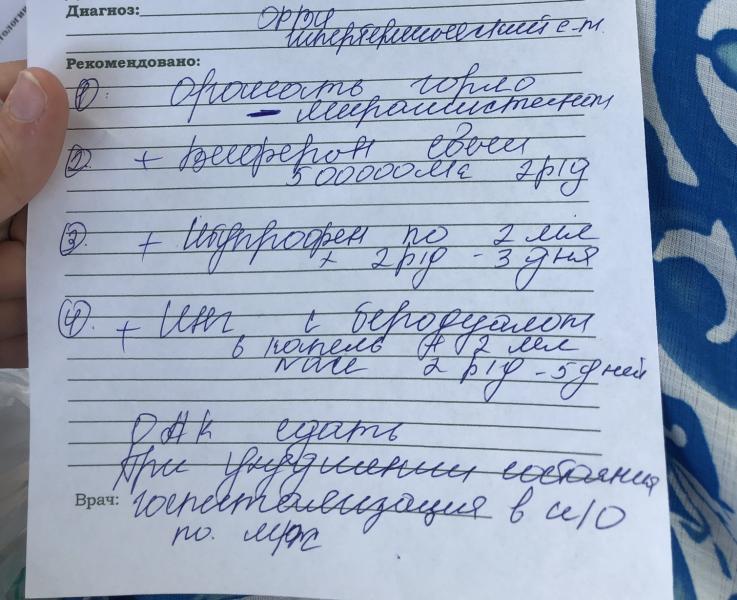 Диагноз: ОРВИ
гипертермический с-м.
Рекомендовано:
1 Орошать горло
- мирамистином
2. + Виферон свечи
500000МЕ 2р/д
3. + Ибупрофен по 2 мл
2р/д - 3 дня
4. + Инг с беродуалом
6 капель + 2 мл
2 р/д - 5 дней
ОАК сдать
При ухудшении состояния
Врач: госпитализация в и/о
по м/ж